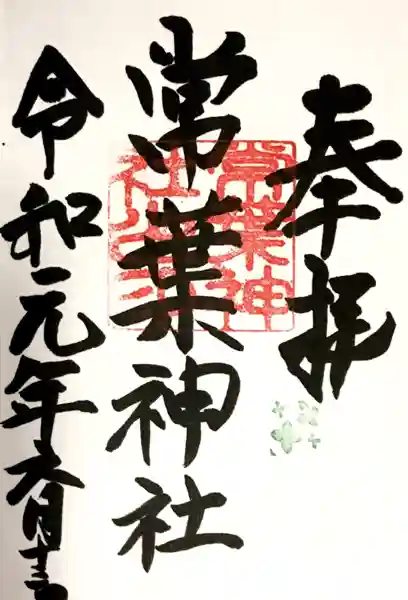 奉拝
常葉神社
令和元年六月十三日
常葉神
社